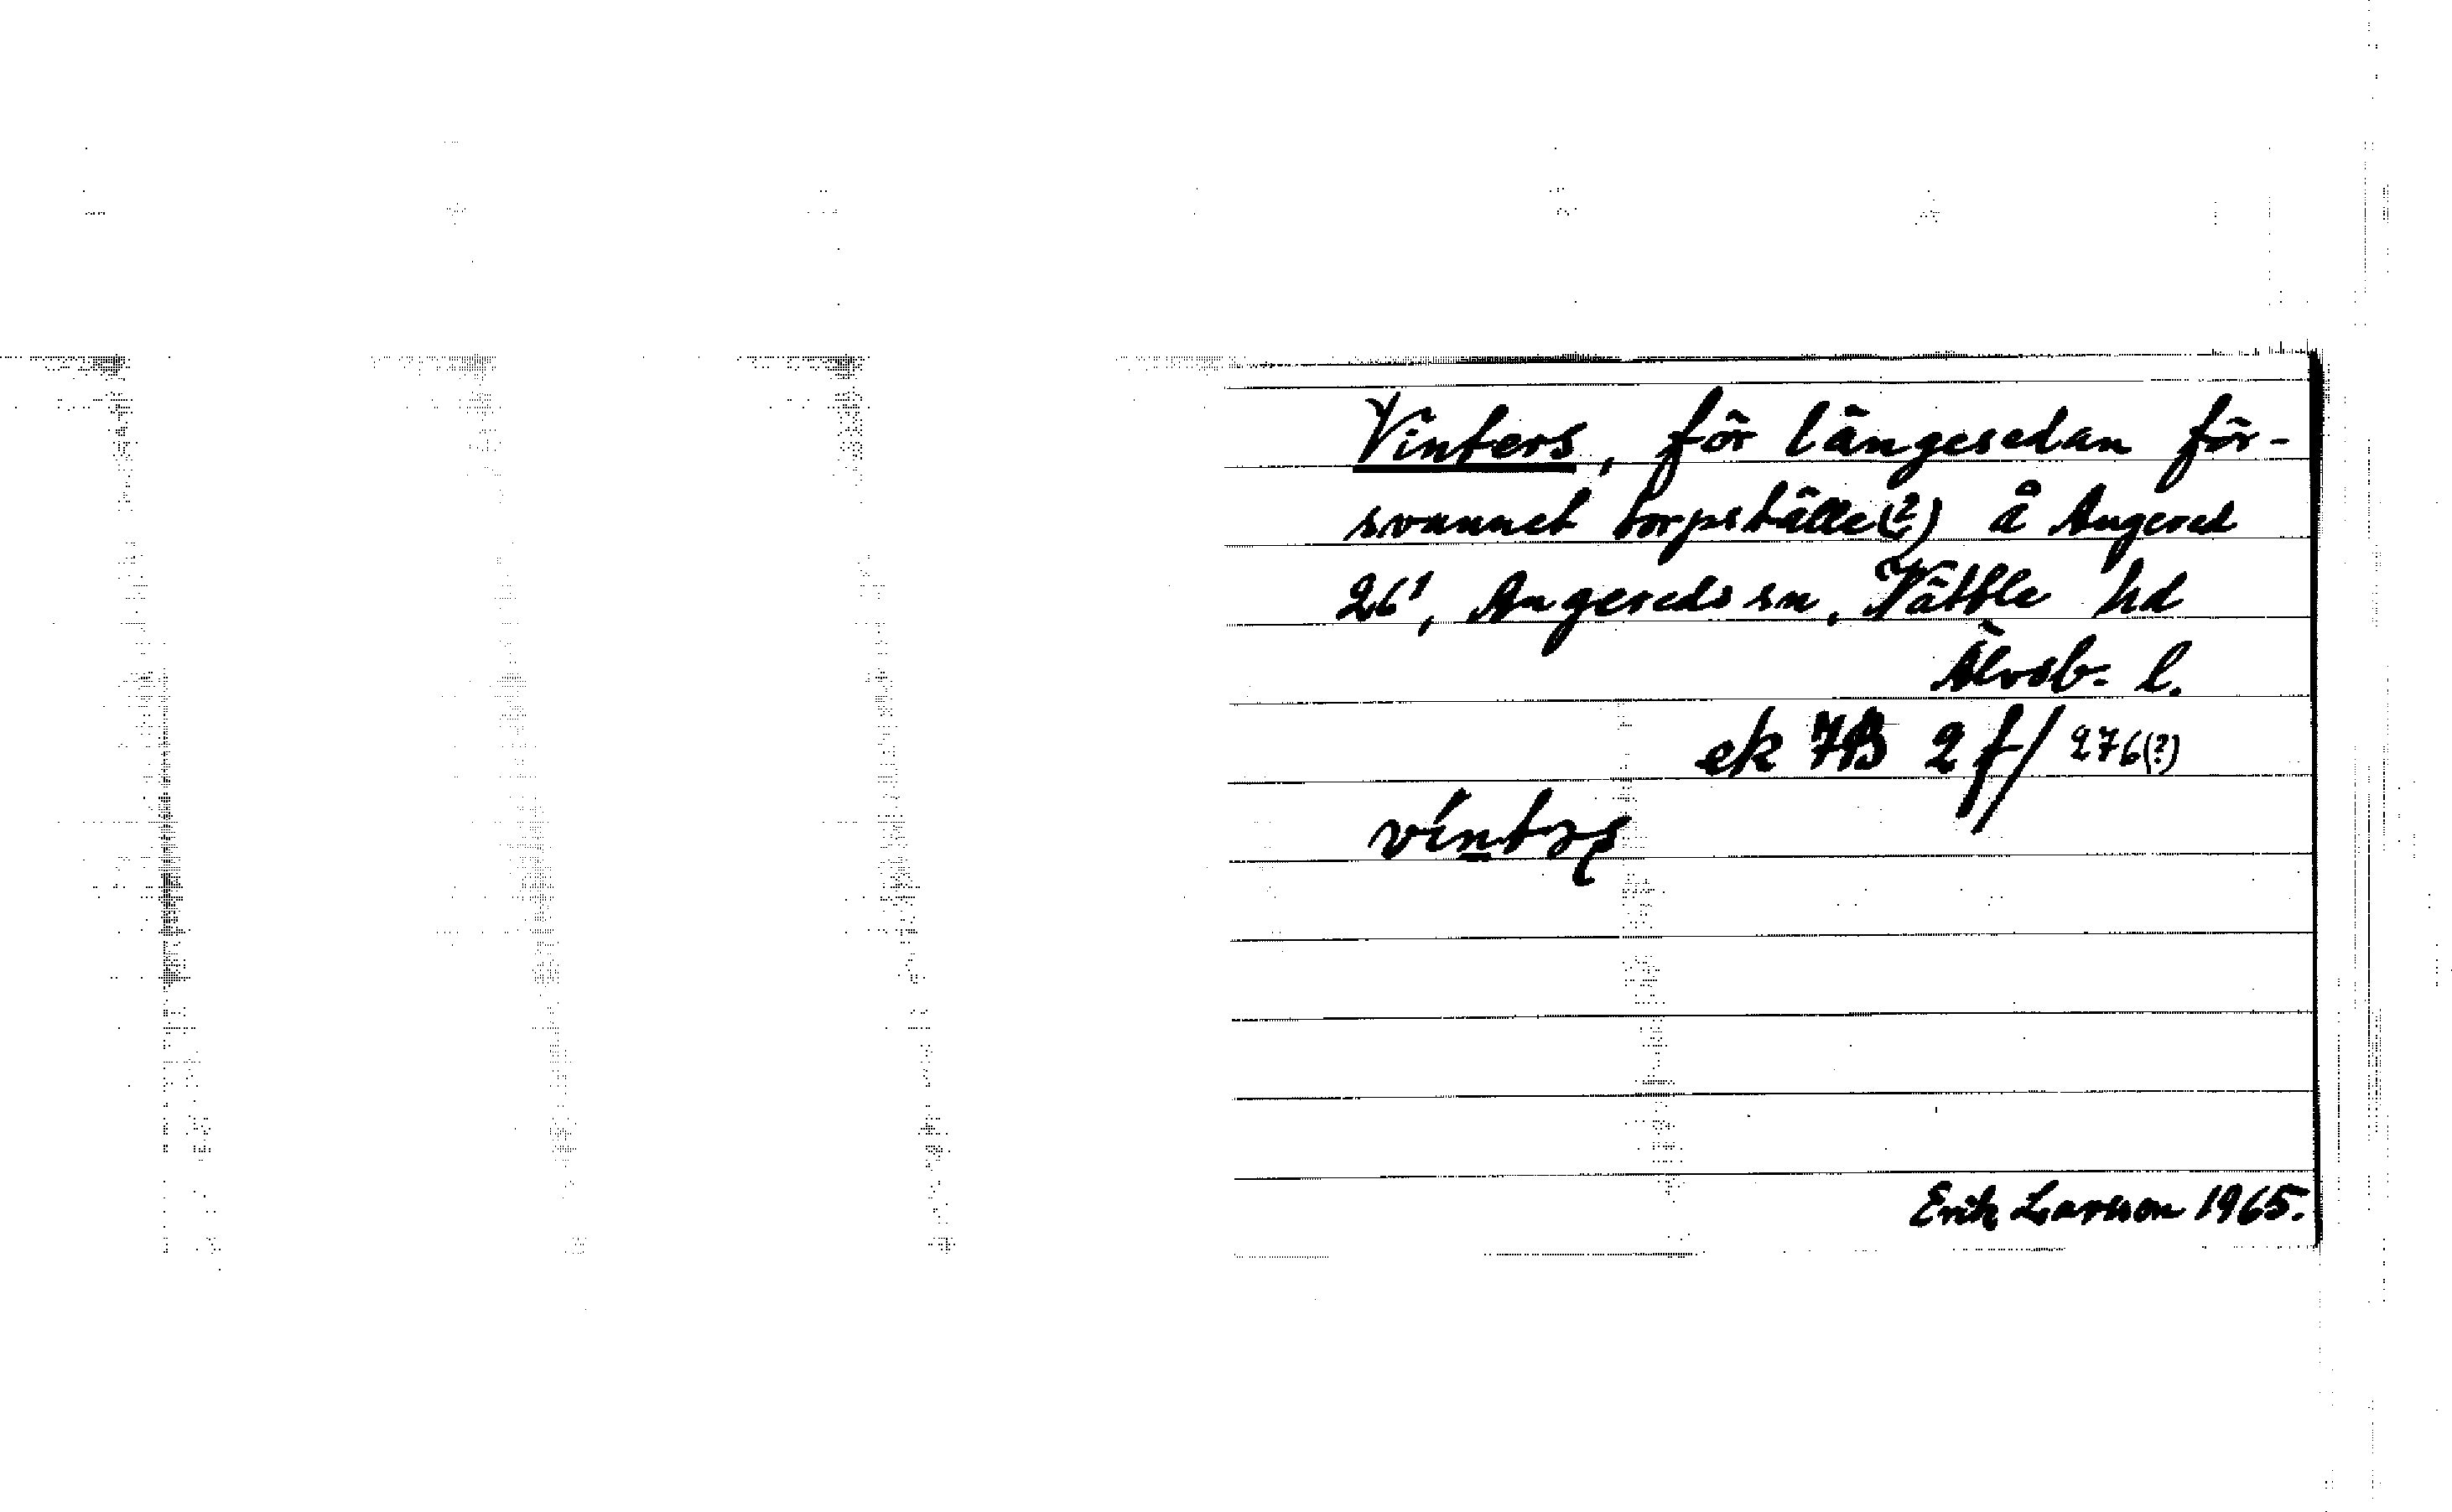 Vinters, för längesedan för-
svunnet torpställe(?) å Angered
26¹, Angereds sn, Vättle hd
Älvsb. l.
ek 7B 2 f/276(?)
Erik Larsson 1965.